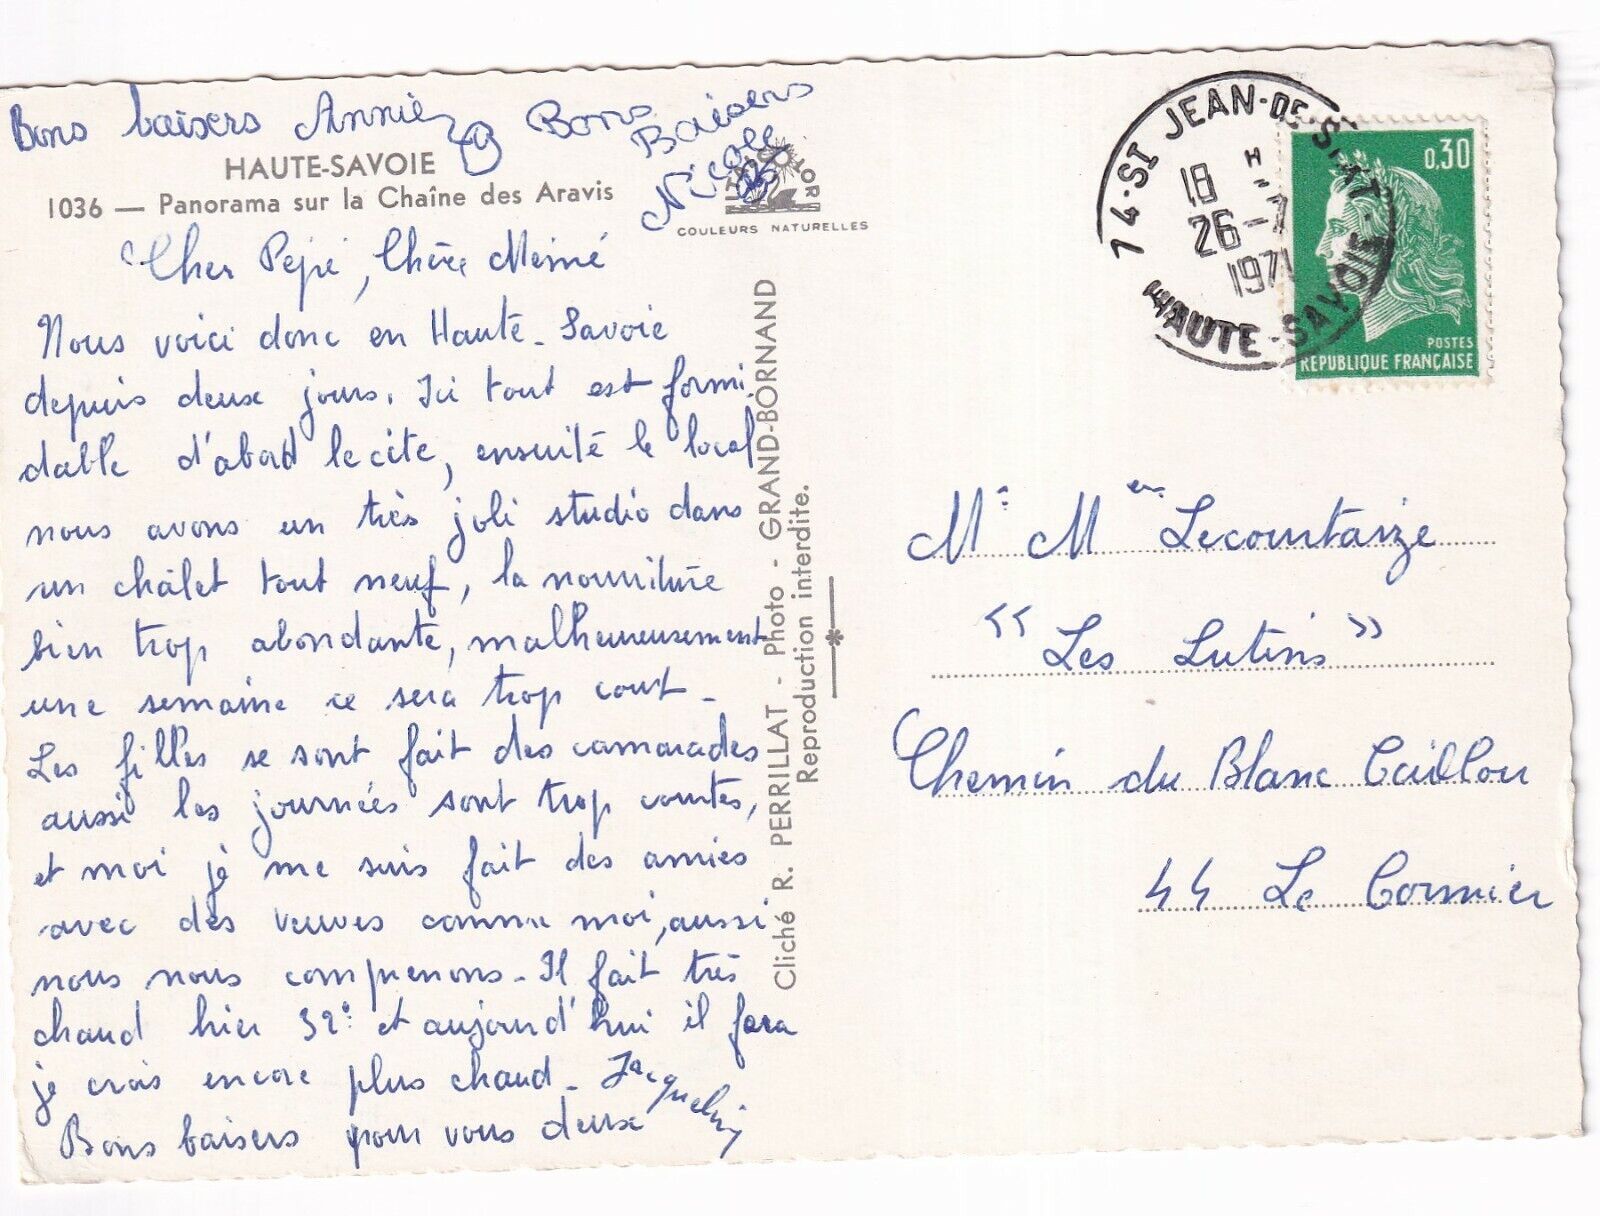 Bons baisers Annie Bons Baisers
Nicole
HAUTE-SAVOIE
1036 — Panorama sur la Chaîne des Aravis
COULEURS NATURELLES
Cher Pépé, Chère Mémé
Nous voici donc en Haute-Savoie
depuis deux jours. Ici tout est formi
dable d'abord le cite, ensuite le local
nous avons un très joli studio dans
un châlet tout neuf, la nourriture
bien trop abondante, malheureusement
une semaine ce sera trop court -
Les filles se sont fait des camarades
aussi les journées sont trop courtes,
et moi je me suis fait des amies
avec des veuves comme moi, aussi
nous nous comprenons - Il fait très
chaud hier 32° et aujourd'hui il fera
je crois encore plus chaud - Jacqueline
Bons baisers pour vous deux
Cliché R. PERRILLAT - Photo - GRAND-BORNAND
Reproduction interdite.
74-ST JEAN-DE-SIXT
18 H
26-7
1971
HAUTE-SAVOIE
0,30
POSTES
REPUBLIQUE FRANÇAISE
Mr Men Lecourtaize
"Les Lutins"
Chemin du Blanc Caillou
44 Le Cormier